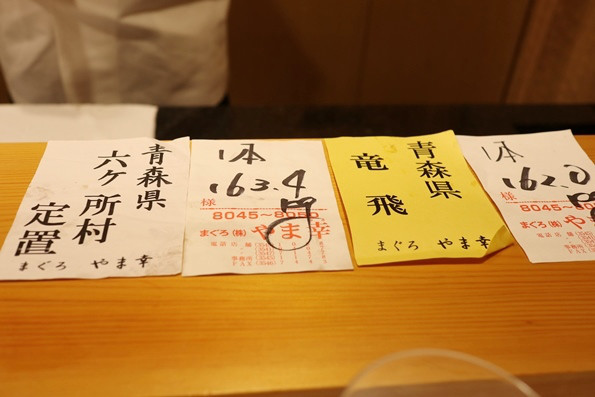 青森県
六ヶ所村
定置
まぐろ やま幸
1本
163.4
様
8045~8050
まぐろ(株)やま幸
青森県
竜飛
まぐろ やま幸
1本
162.0
様
8045~80
まぐろ(株)や